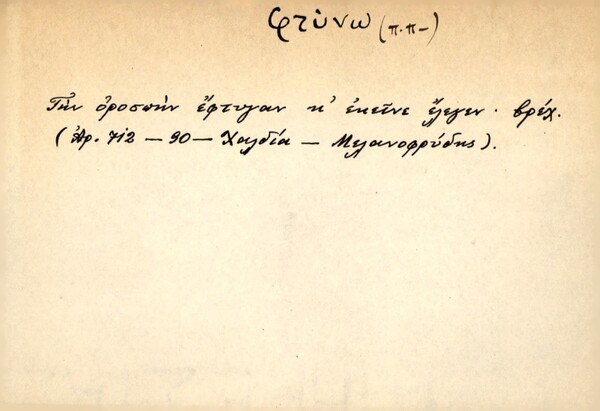 φτύνω (π.π-)
Τὴν ὀροσπὴν ἔφτυγαν κ' ἐκείνε ἔλεγεν· βρέχ.
(Ἀρ. 712 — 90 — Χαλδία — Μελανοφρύδης).